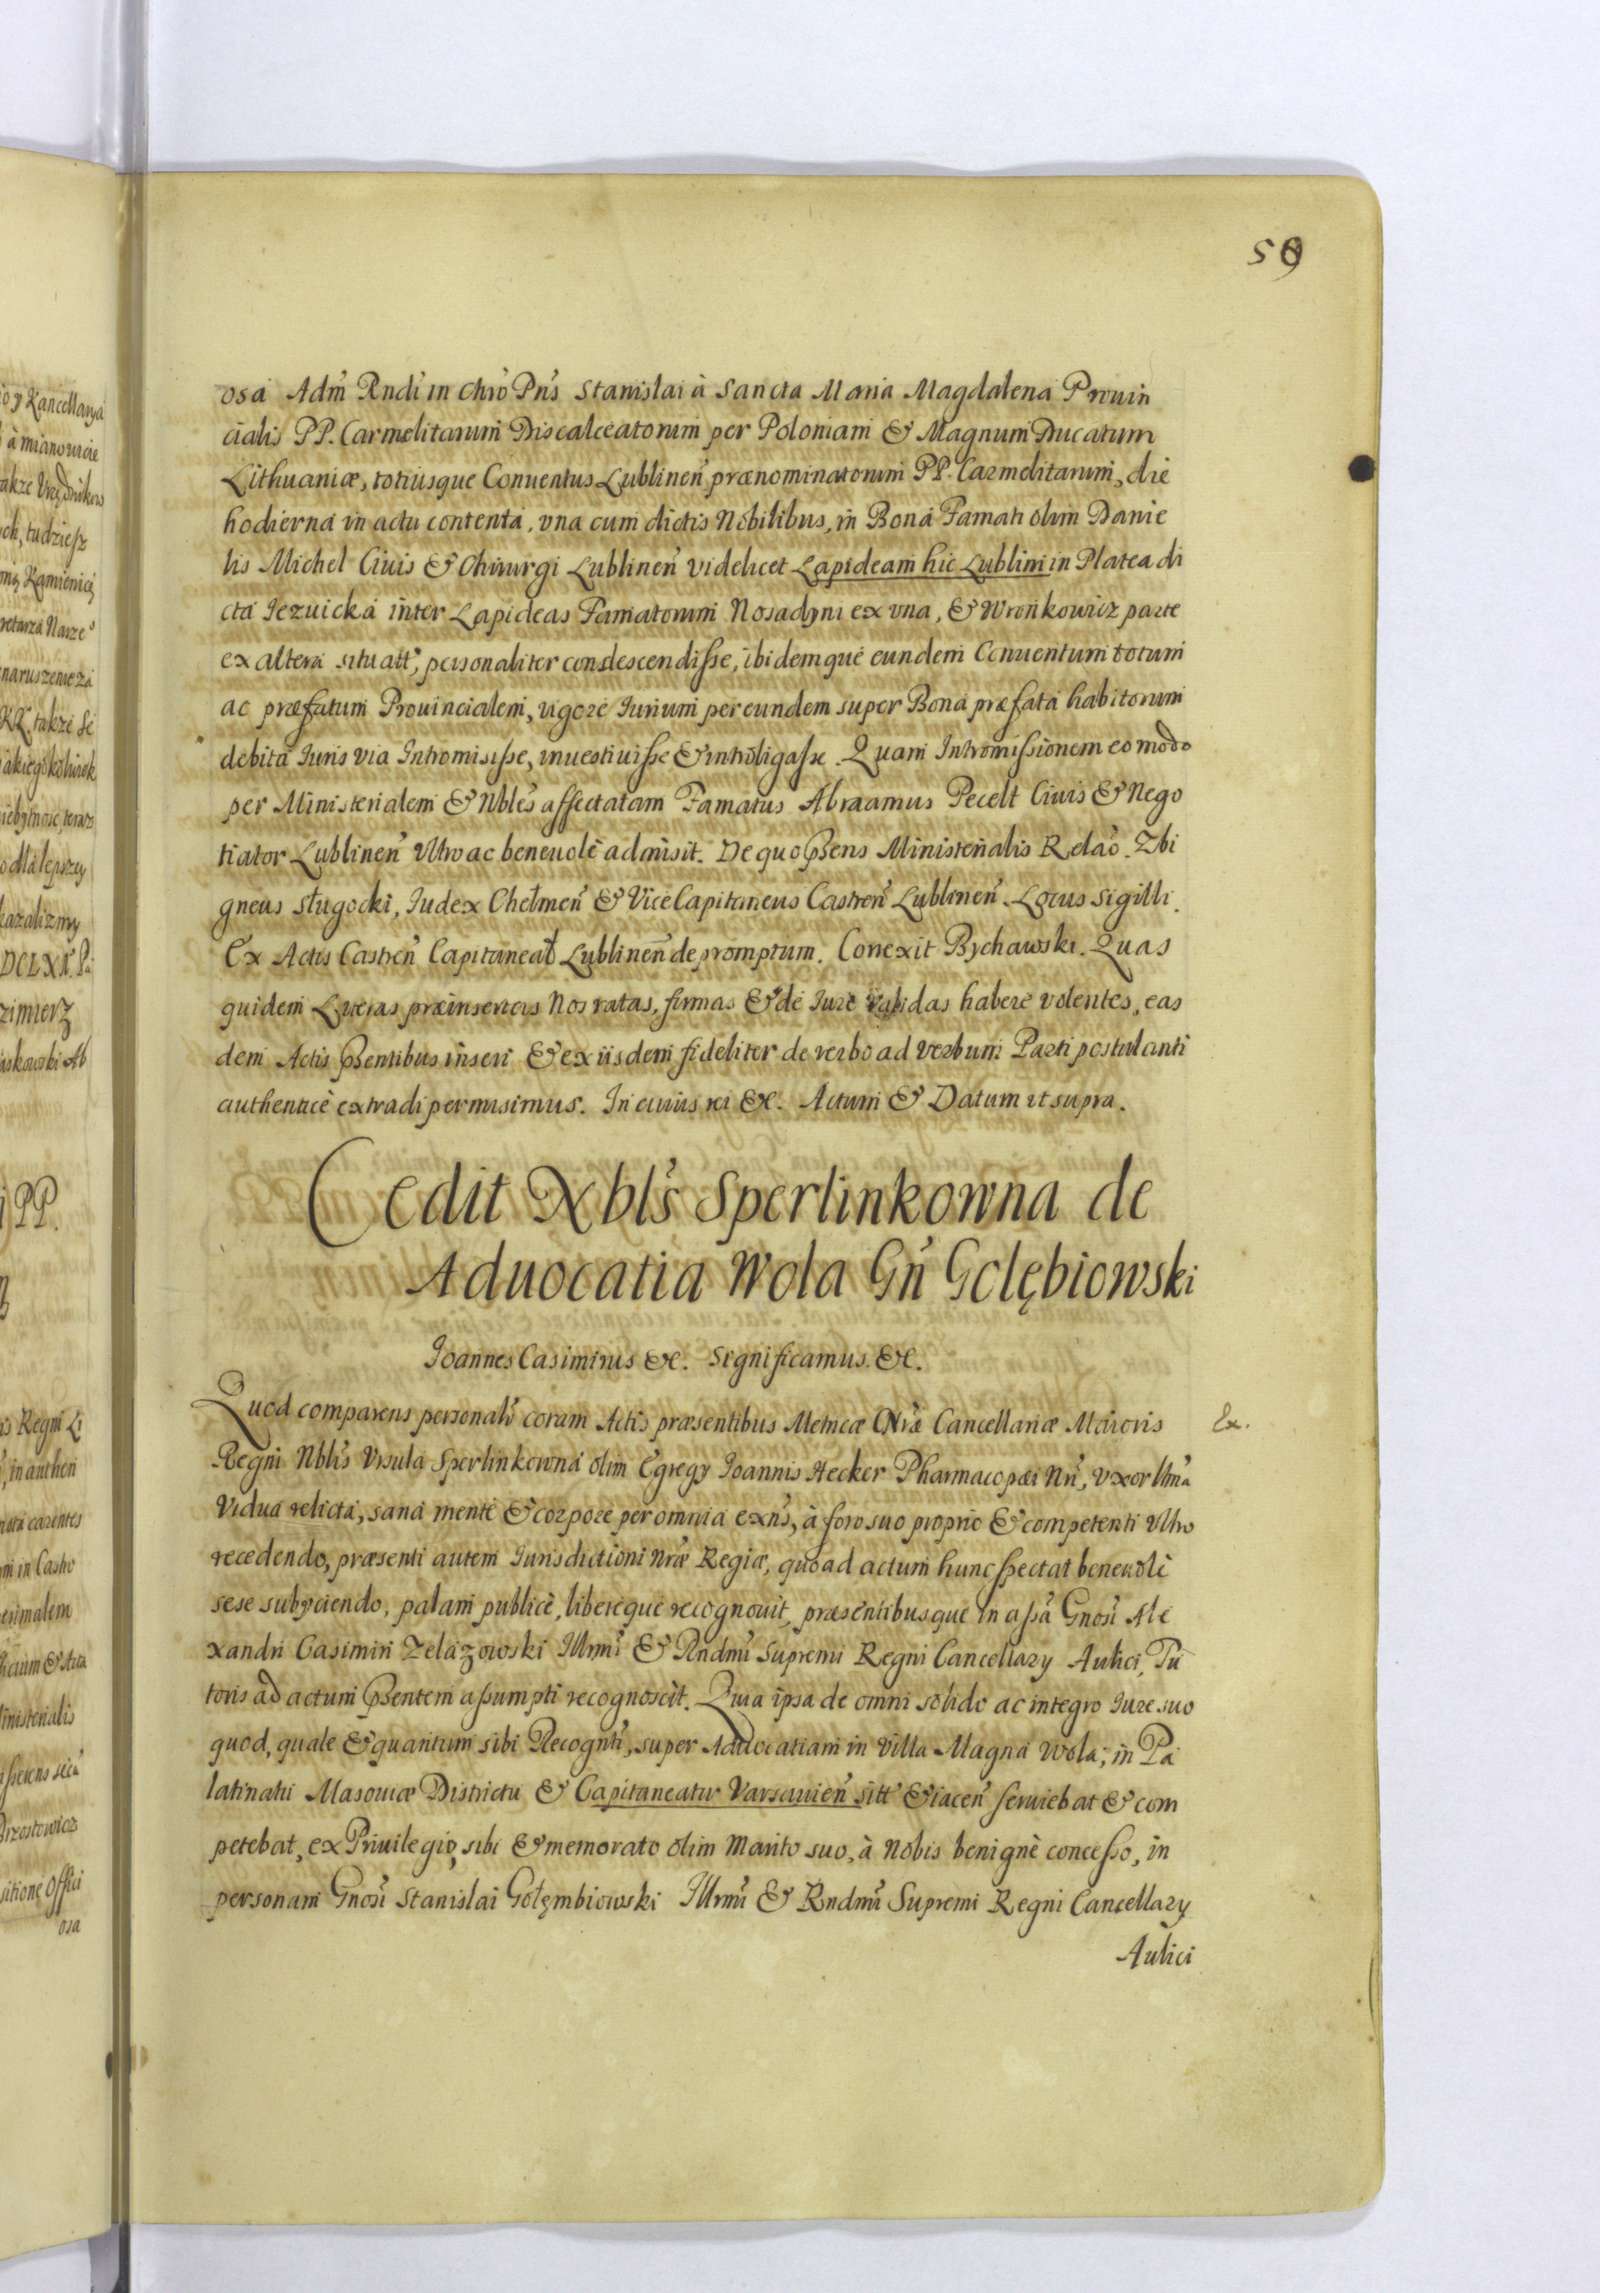 59
osa Adm̃ Rndi in Chrõ Pñs Stanislai à Sancta Maria Magdalena Prouin
cialis PP. Carmelitarum Discalceatorum per Poloniam & Magnum Ducatum
Lithuaniæ, totiusque Conuentus Lublineñ prænominatorum PP. Carmelitarum, die
hodierna in actu contenta, vna cum dictis Nobilibus, in Bona Famati olim Danie
lis Michel Ciuis & Chirurgi Lublineñ videlicet Lapideam hic Lublini in Platea di
cta Iezuicka inter Lapideas Famatorum Nosadyni ex vna, & Wronkowicz parte
ex altera situatt, personaliter condescendisse, ibidemque eundem Conuentum totum
ac præfatum Prouincialem, vigore Iurium per eundem super Bona præfata habitorum
debita Iuris via Intromisisse, inuestiuisse & introligasse. Quam Intromissionem eo modo
per Ministerialem & Nbles affectatam Famatus Abraamus Pecelt Ciuis & Nego
tiator Lublineñ Vltro ac beneuolè admisit. De quo p̃sens Ministerialis Relaõ. Zbi
gneus Sługocki, Iudex Chełmeñ & ViceCapitaneus Castreñ Lublineñ. Locus Sigilli.
Ex Actis Castreñ Capitaneat Lublineñ depromptum. Correxit Bychawski. Quas
quidem Lrẽras præinsertas Nos ratas, firmas & de Iure validas habere volentes, eas
dem Actis p̃sentibus inseri & ex iisdem fideliter de verbo ad verbum Parti postulanti
authenticè extradi permisimus. In cuius rei &c. Actum & Datum vt supra.
Cedit Nbl's Sperlinkowna de
Aduocatia Wola Gñ Golębiowski
Ioannes Casimirus &c. Significamus &c.
Quod comparens personalr̃ coram Actis præsentibus Metricæ Nræ Cancellariæ Maioris
Ex.
Regni Nblis Vrsula Sperlinkowna olim Egregy Ioannis Hecker Pharmacopæi Nrĩ, Vxor Vnã
Vidua relicta, sana mente & corpore per omnia exñs, à foro suo proprio & competenti Vltro
recedendo, præsenti autem Iurisdictioni Nræ Regiæ, quoad actum hunc spectat beneuolè
sese subyciendo, palam publicè, libereque recognouit, præsentibusque in assã Gnosi Ale
xandri Casimiri Zelazowski Illrmi & Rndmi Supremi Regni Cancellary Aulici, Tu
toris ad actum p̃sentem assumpti recognoscit. Quia ipsa de omni solido ac integro Iure suo
quod, quale & quantum sibi Recognti, super Aduocatiam in Villa Magna Wola, in Pa
latinatu Masouiæ Districtu & Capitaneatu Varsauieñ sitt & iaceñ seruiebat & com
petebat, ex Priuilegio, sibi & memorato olim Marito suo, à Nobis benignè concesso, in
personam Gnosi Stanislai Gołęmbiowski Illrmi & Rndmi Supremi Regni Cancellary
Aulici